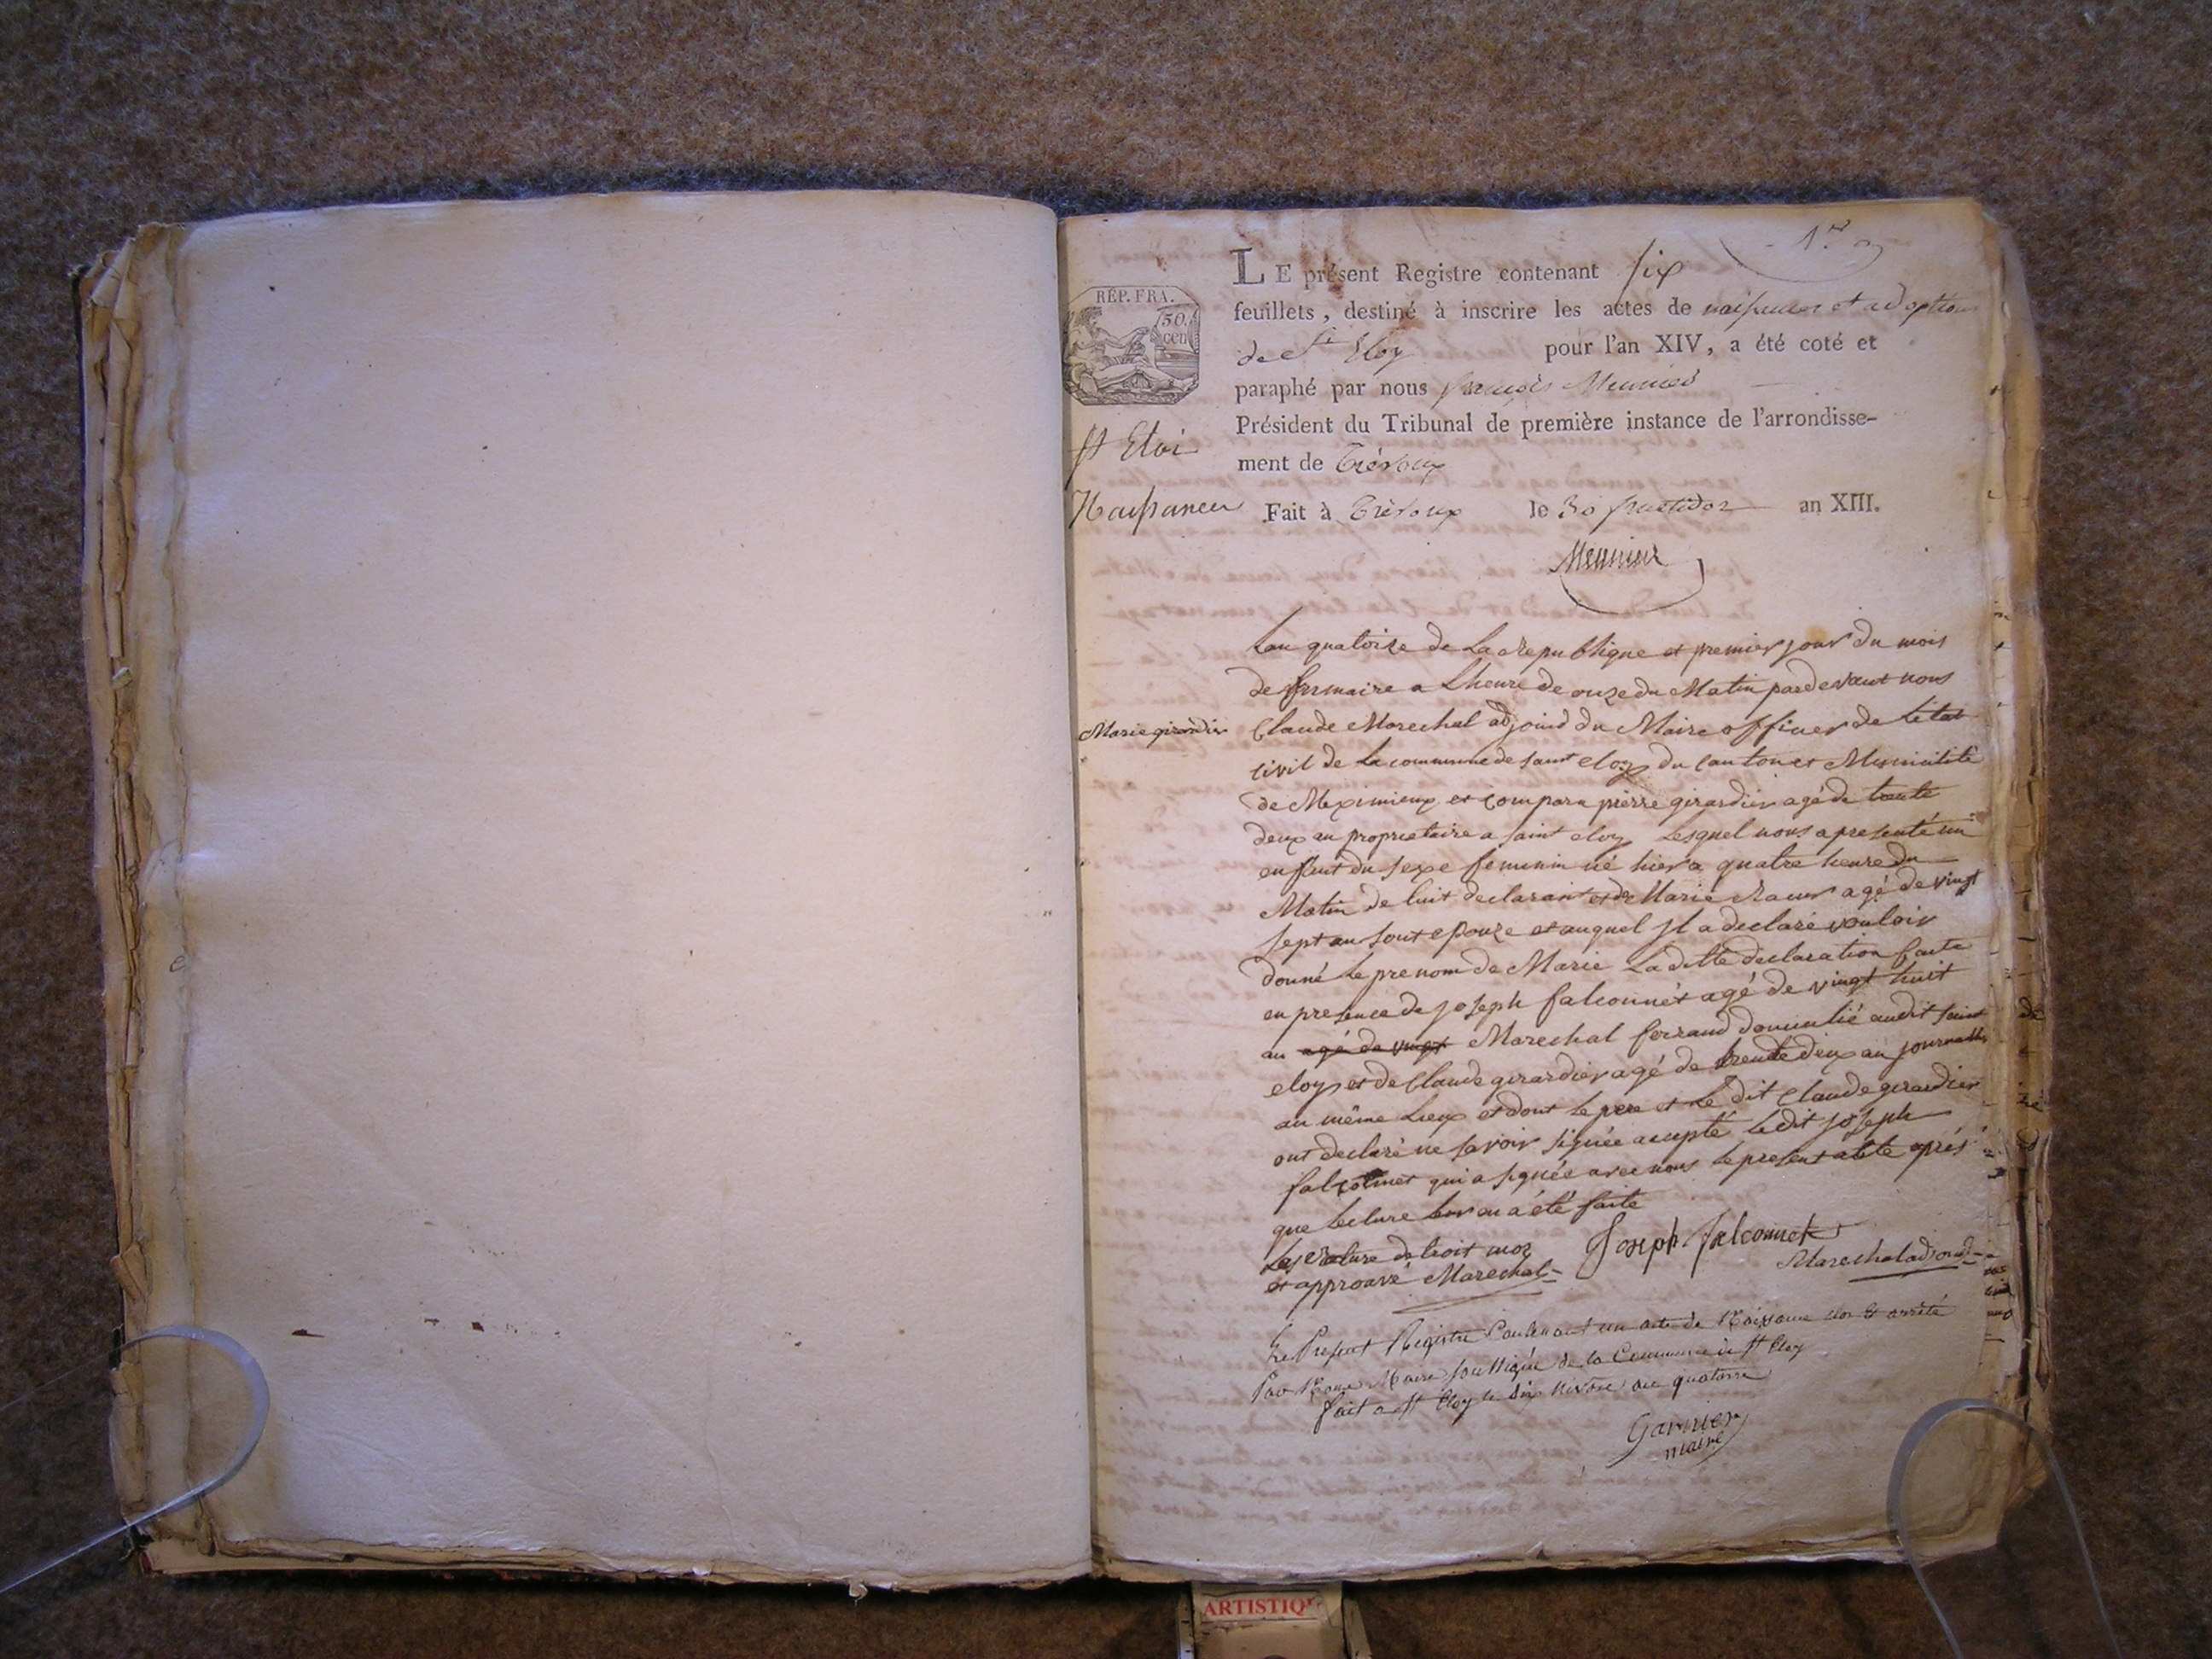 1er
LE présent Registre contenant six
feuillets, destiné à inscrire les actes de naissances et adoption
de St Eloy pour l'an XIV, a été coté et
paraphé par nous françois Meunier
Président du Tribunal de première instance de l'arrondisse-
ment de Trévoux
Fait à Trévoux le 30 fructidor an XIII.
Meunier
RÉP. FRA.
50.
cen
St Eloi
Naissances
Marie girardier
Lan quatorze de La republique et premier jour du mois
de frimaire a Lheure de onze du Matin pardevant nous
Claude Marechal adjoind du Maire officier de Letat
civil de La commune de saint eloy du canton et
de Meximieux et compara pierre girardier agé de trente
deux an proprietaire a saint eloy Lesquel nous a presenté un
enfant du sexe feminin né hier a quatre heure du
Matin de luit declarant et de Marie agé de vingt
sept an sont epouze et auquel jl a declaré vouloir
donné Le prenom de Marie La ditte declaration faite
en presence de joseph falconnet agé de vingt huit
an agé de vingt Marechal ferrand domicilié audit saint
eloy et de Claude girardier agé de trente deux an journallier
au même Lieux et dont Le pere et Le dit Claude girardier
ont declaré ne savoir signée acepté Ledit joseph
falconnet qui a signée avec nous Le present acte aprés
que Lecture leur en a été faite
Les rature de troit moz
et approuvé Marechal
Joseph falconnet
Marechal adjoind
Le Présent Registre Contenant un acte de Naissance clos & arrêté
Par Nous Maire soussigné de la Commune de St Eloy
fait a St Eloy le dix Nivôse an quatorze
Garnier
maire
ARTISTIQ